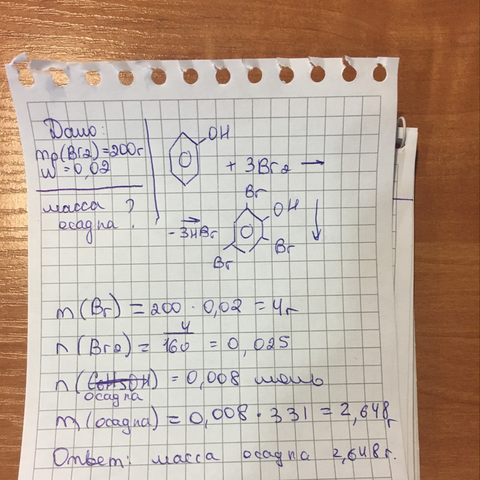 Дано:
mр(Br2)=200г
w=0,02
масса осадка ?
OH
+ 3Br2 →
→
- 3HBr
Br
OH
Br
Br
↓
m(Br) = 200 · 0,02 = 4г
n(Br2) = 4/160 = 0,025
n(C6H5OH) = 0,008 моль
осадка
m(осадка) = 0,008 · 331 = 2,648г
Ответ: масса осадка 2,648г.